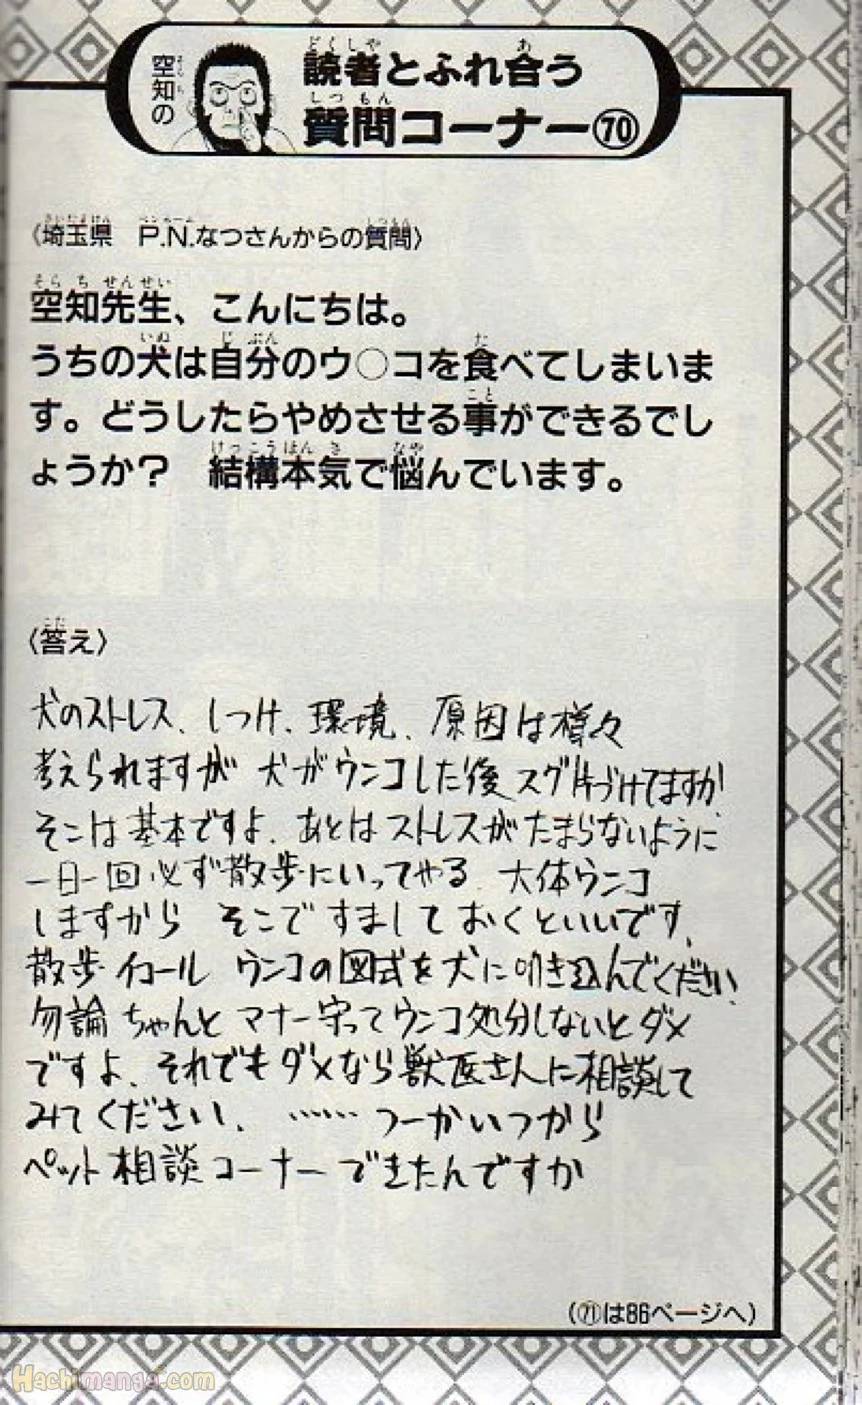 空知の
読者とふれ合う
質問コーナー⑦⓪
〈埼玉県　P.N.なつさんからの質問〉
空知先生、こんにちは。
うちの犬は自分のウ○コを食べてしまいま
す。どうしたらやめさせる事ができるでし
ょうか？　結構本気で悩んでいます。
〈答え〉
犬のストレス、しつけ、環境、原因は様々
考えられますが 犬がウンコした後スグ片づけてますか
そこは基本ですよ、あとはストレスがたまらないように
一日一回必ず散歩にいってやる 大体ウンコ
しますから そこですましておくといいです、
散歩イコール ウンコの図式を犬に叩き込んでください、
勿論ちゃんとマナー守ってウンコ処分しないとダメ
ですよ、それでもダメなら獣医さんに相談して
みてください、……つーかいつから
ペット相談コーナーできたんですか
（㉛は86ページへ）
Hachimanga.com